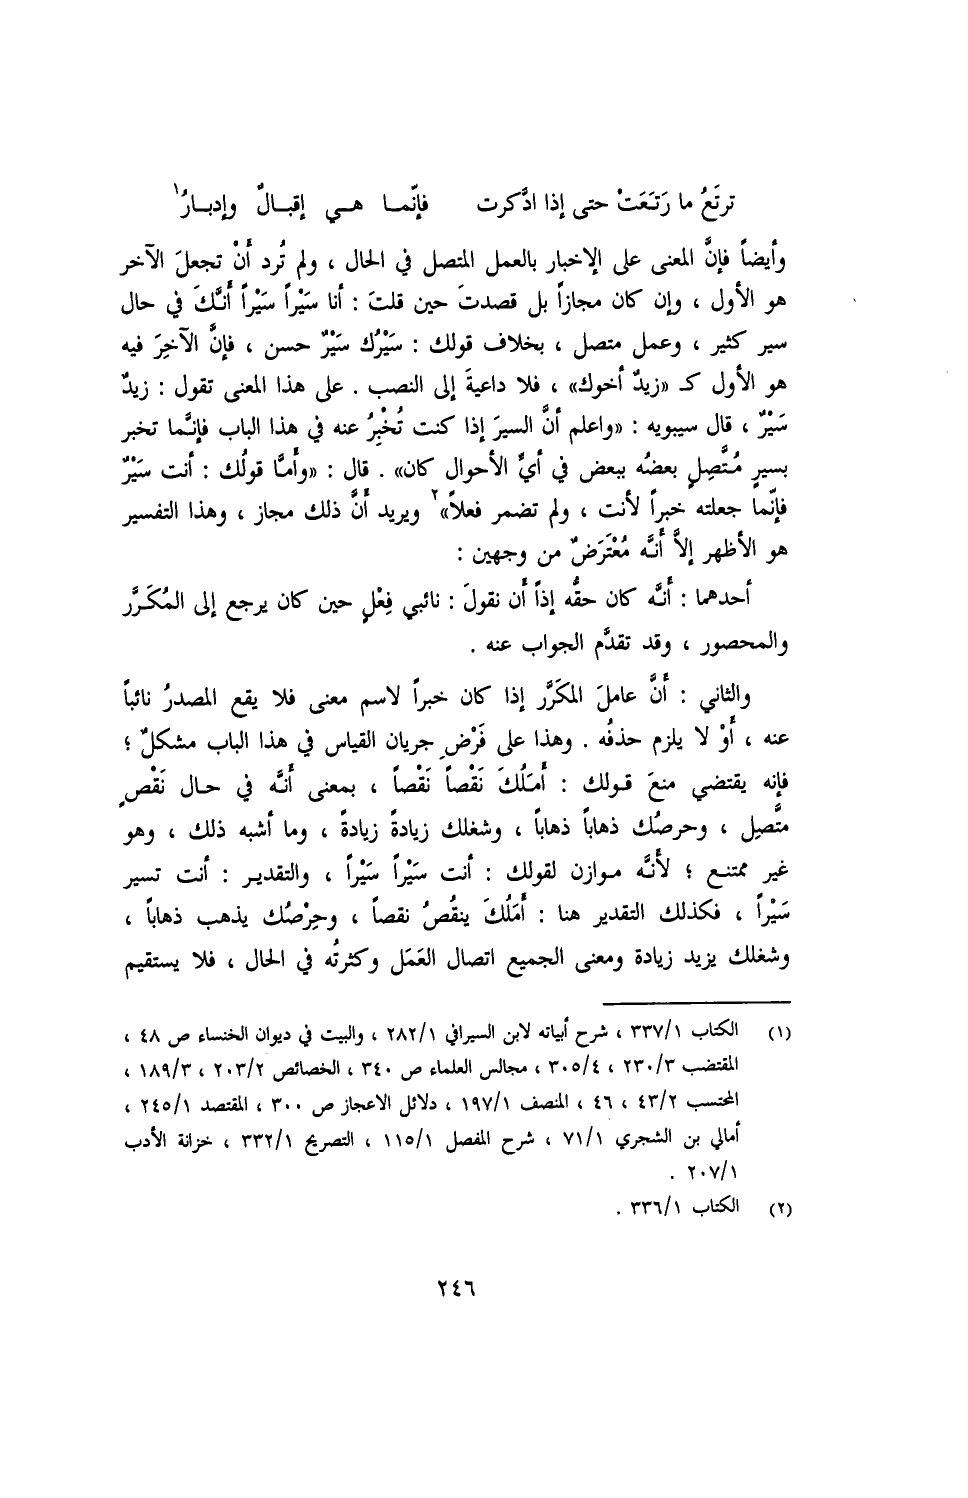 ترتَعُ ما رَتَعَتْ حتى إذا ادَّكرت فإنّما هي إقبالٌ وإدبارُ¹
وأيضاً فإنَّ المعنى على الإخبار بالعمل المتصل في الحال ، ولم تُرد أَنْ تجعلَ الآخر
هو الأول ، وإن كان مجازاً بل قصدتَ حين قلتَ : أنا سَيْراً سَيْراً أَنَّكَ في حال
سير كثير ، وعمل متصل ، بخلاف قولك : سَيْرُك سَيْرٌ حسن ، فإنَّ الآخِرَ فيه
هو الأول كـ «زيدٌ أخوك» ، فلا داعيةَ إلى النصب . على هذا المعنى تقول : زيدٌ
سَيْرٌ ، قال سيبويه : «واعلم أنَّ السيرَ إذا كنت تُخْبِرُ عنه في هذا الباب فإنَّما تخبر
بسيرٍ مُتَّصِلٍ بعضُه ببعض في أيِّ الأحوال كان» . قال : «وأَمَّا قولُك : أنت سَيْرٌ
فإنّما جعلته خبراً لأنت ، ولم تضمر فعلاً»² ويريد أَنَّ ذلك مجاز ، وهذا التفسير
هو الأظهر إلاَّ أَنَّه مُعْتَرَضٌ من وجهين :
أحدهما : أَنَّه كان حقُّه إذاً أَن نقولَ : نائبي فِعْلٍ حين كان يرجع إلى المُكَرَّر
والمحصور ، وقد تقدَّم الجواب عنه .
والثاني : أَنَّ عاملَ المكَرَّر إذا كان خبراً لاسم معنى فلا يقع المصدرُ نائباً
عنه ، أَوْ لا يلزم حذفُه . وهذا على فَرْضِ جريان القياس في هذا الباب مشكلٌ ؛
فإنه يقتضي منعَ قولك : أَمَلُكَ نَقْصاً نَقْصاً ، بمعنى أَنَّه في حال نَقْصٍ
متَّصِل ، وحرصُك ذهاباً ذهاباً ، وشغلك زيادةً زيادةً ، وما أشبه ذلك ، وهو
غير ممتنع ؛ لأَنَّه موازن لقولك : أنت سَيْراً سَيْراً ، والتقدير : أنت تسير
سَيْراً ، فكذلك التقدير هنا : أَمَلُكَ ينقُصُ نقصاً ، وحِرْصُك يذهب ذهاباً ،
وشغلك يزيد زيادة ومعنى الجميع اتصال العَمَل وكثرتُه في الحال ، فلا يستقيم
(١) الكتاب ٣٣٧/١ ، شرح أبياته لابن السيرافي ٢٨٢/١ ، والبيت في ديوان الخنساء ص ٤٨ ،
المقتضب ٢٣٠/٣ ، ٣٠٥/٤ ، مجالس العلماء ص ٣٤٠ ، الخصائص ٢٠٣/٢ ، ١٨٩/٣ ،
المحتسب ٤٣/٢ ، ٤٦ ، المنصف ١٩٧/١ ، دلائل الاعجاز ص ٣٠٠ ، المقتصد ٢٤٥/١ ،
أمالي بن الشجري ٧١/١ ، شرح المفصل ١١٥/١ ، التصريح ٣٣٢/١ ، خزانة الأدب
٢٠٧/١ .
(٢) الكتاب ٣٣٦/١ .
٢٤٦